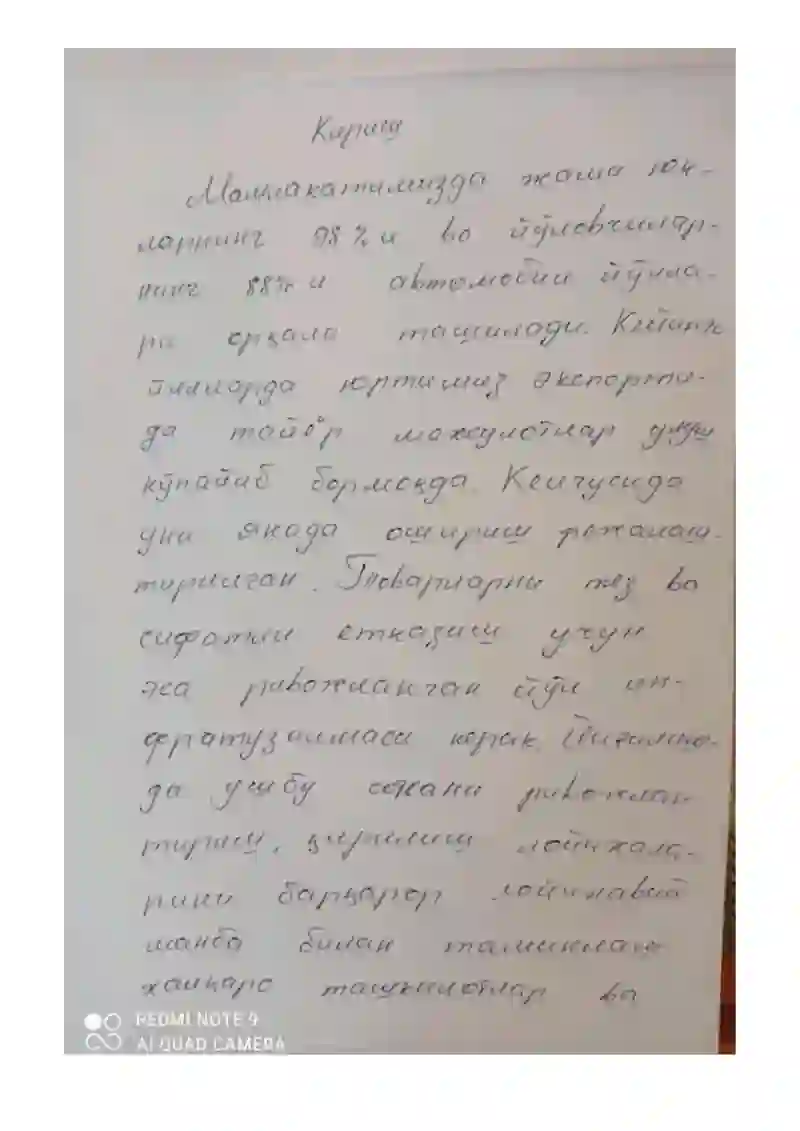 Кириш
Мамлакатимизда жами юк-
ларнинг 98 % и ва йўловчилар-
нинг 88% и автомобил йўлла-
ри орқали ташилади. Кейинги
йилларда юртимиз экспорти-
да тайёр махсулотлар улуши
кўпайиб бормоқда. Келгусида
уни янада ошириш режалаш-
тирилган. Товарларни тез ва
сифатли етказиш учун
эса ривожланган йўл ин-
фратузилмаси керак. Йиғилиш-
да ушбу соҳани ривожлан
тириш, қурилиш лойихала-
рини барқарор молиявий
манба билан таминлаш
халқаро ташкилотлар ва
REDMI NOTE 9
AI QUAD CAMERA